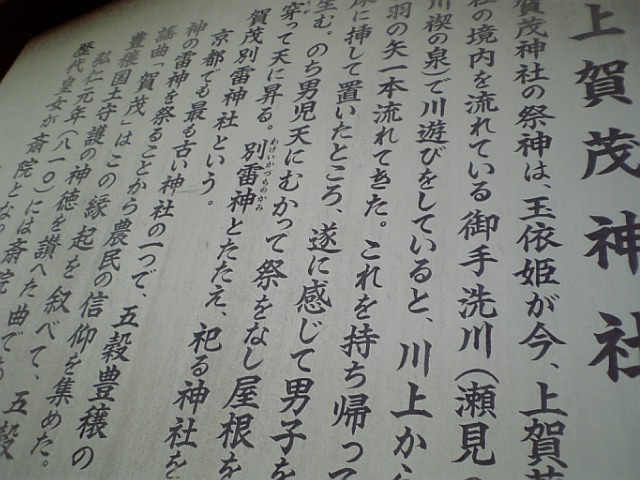 上賀茂神社
賀茂神社の祭神は、玉依姫が今、上賀茂
社の境内を流れている御手洗川（瀬見の
川禊の泉）で川遊びをしていると、川上から
羽の矢一本流れてきた。これを持ち帰って
床に挿して置いたところ、遂に感じて男子を
生む。のち男児天にむかって祭をなし屋根を
穿って天に昇る。別雷神とたたえ、祀る神社を
わけいかづちのかみ
賀茂別雷神社という。
京都でも最も古い神社の一つで、五穀豊穣の
神の雷神を祭ることから農民の信仰を集めた。
謡曲「賀茂」はこの縁起を叙べて、五穀
豊穣国土守護の神徳を讃へた曲であ
弘仁元年（八一〇）には斎院
歴代皇女が斎院となっ